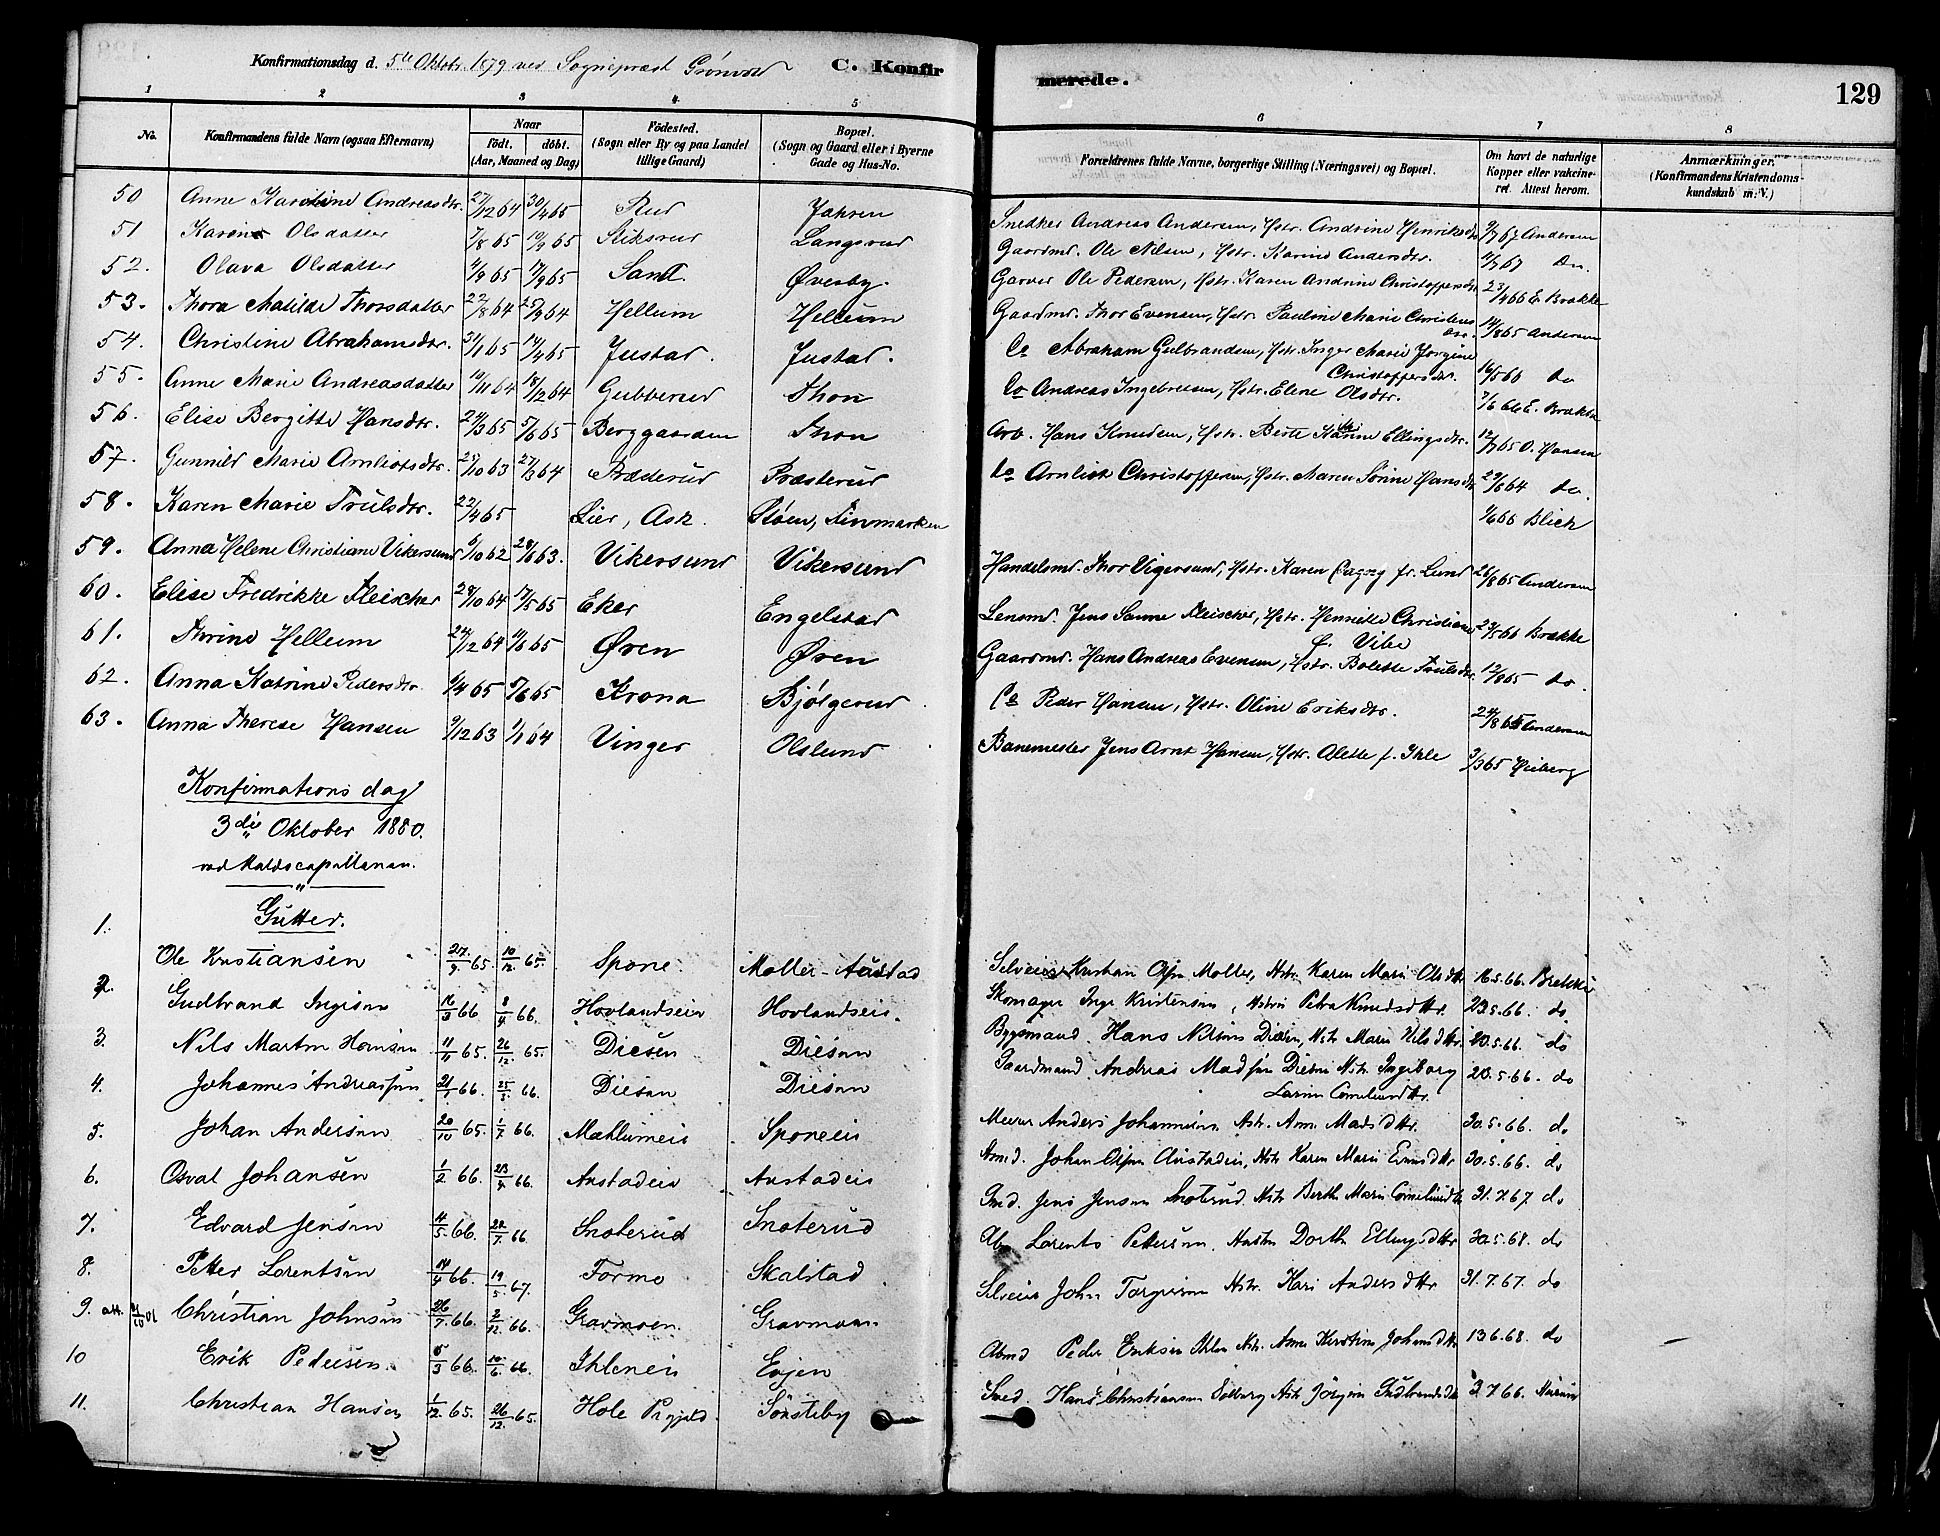 Konfirmationsdag d. 5te Oktobr. 1879 ved Sogneprest Grønvold C. Konfirmerede. 129
1 2 3 4 5 6 7 8
No. Konfirmandens fulde Navn (ogsaa Efternavn) Naar født. døbt. (Aar, Maaned og Dag) Fødested. (Sogn eller By og paa Landet tillige Gaard) Bopæl. (Sogn og Gaard eller i Byerne Gade og Hus-No. Forældrenes fulde Navne, borgerlige Stilling (Næringsvei) og Bopæl. Om havt de naturlige Kopper eller vakcineret. Attest herom. Anmærkninger. (Konfirmandens Kristendomskundskab m. V.)
50 Anne Karoline Andreasdtr. 27/12 64 30/4 65 Rud Jahren Snedker Andreas Andersen, Hstr. Andrine Henriksdtr 9/7 67 Andersen
51 Karine Olsdatter 7/8 65 10/9 65 Stiksrud Langsrud Gaardmd. Ole Nilsen, Hstr. Karine Andersdtr. 4/7 67 do.
52. Olava Olsdatter 4/9 65 17/9 65 Sand Øvesby. Garver Ole Pedersen, Hstr. Karen Andrine Christoffersdtr 23/4 66 E. Brække
53. Thora Matilde Thorsdatter 22/8 64 25/9 64 Hellum Hellum Gaardmd. Thor Evensen, Hstr. Pauline Marie Christensdtr. 14/8 65 Andersen
54. Christine Abrahamsdtr. 31/1 65 14/4 65 Justad. Justad. Do Abraham Gulbrandsen, Hstr. Inger Marie Jørgine Christoffersdtr. 16/5 66 do
55. Anne Marie Andreasdatter 10/11 64 18/12 64 Gubberud Thon Do Andreas Ingebretsen, Hstr. Elene Olsdtr. 7/6 66 E. Brække
56. Elise Bergitte Hansdtr. 24/3 65 5/6 65 Berggaarden Thon Arb. Hans Knudsen, Hstr. Berte Ellingsdtr. 12/7 65 O. Hansen
57. Gunnild Marie Arnliotsdtr. 25/10 63 27/3 64 Præsterud Do Arnliot Christoffersen, Hstr. Maren Sørine Hansdtr 29/6 64 do.
58. Karen Marie Trulsdtr. 22/4 65 Lier, Ask. Støen, Finmarken 1/6 66 Blich
59. Anna Helene Christiane Vikersund 5/10 62 Vikersund Vikersund Handelsmd. Thor Vigersund, Hstr. Karen f. Lund 26/8 65 Andersen
60. Elise Fredrikke Fleischer 28/10 64 17/5 65 Eker Engelstad Lensmd. Jens Sanne Fleischer, Hstr. Henriette Christiane f. Vibe 29/5 66 Brække
61. Thrine Hellum 24/12 64 Øren Øren Gaardmd. Hans Andreas Evensen, Hstr. Bolette Trulsdtr. 12/8 65 do.
62. Anna Katrine Pedersdtr. 9/4 65 5/6 65 Krona Bjølgerud Do Peder Hansen, Hstr. Oline Eriksdtr. 24/8 65 Andersen
63. Anna Therese Hansen 9/12 63 1/1 64 Vinger Olslund Banemester Jens Arnt Hansen, Hstr. Alette f. Ihle 3/3 65 Heiberg
Konfirmations dag
3die Oktober 1880.
ved Kaldscapellanen.
"
Gutter.
1. Ole Kristiansen 27/9 65. 10/12 65. Spone. Moller-Austad Kristian Olsen Moller, Hstr. Karen Marie Olsdttr 16.5.66. Brekke
2. Gudbrand Ingesen 16/3 66 8/4 66. Hovlandseie Hovlandseie. Skomager Inge Kristensen, Hstru Petra Knudsdttr. 23.5.66. do.
3. Nils Martin Hansen 11/11 65. 26/12 65. Diesen Diesen Bygsmand Hans Nilsen Diesen, Hstr Maren Nilsdttr. 20.5.66. do
4. Johannes Andreassen 21/1 66. 25/5 66. Diesen Diesen Gaardmand Andreas Madsen Diesen Hstr Ingeborg Larine Corneliusdttr. 20.5.66. do
5. Johan Andersen 20/10 65. 1/7 66. Mæhlumeie Sponeeie Murer Anders Johannesen Hstr. Anne Madsdttr. 30.5.66. do
6. Osval Johansen 1/2 66. 23/4 66. Austadeie Austadeie Arbmd. Johan Olsen Austadeie, Hstr Karen Marie Evensdttr 30.5.66. do
7. Edvard Jensen 4/5 66. 22/7 66 Snoterud Snoterud Smed. Jens Jensen Snoterud Hstr Berthe Marie Corneliusdttr 31.7.67. do
8. Petter Lorentsen 14/4 66. 19/5 67. Formo Skalstad Lorents Pettersen. Hustru Dorthe Ellingsdttr 30.5.68. do
9. att. 2/10 01 Christian Johnsen 26/7 66. 2/12 66. Gravmoen Gravmoen Selveier John Torgersen Hstr Kari Andersdttr 31.7.67. do
10 Erik Pedersen 5/3 66. 10/6 66 Ihleneie Evjen Abmd Peder Eriksen Ihlen Hstr. Anne Kirstine Johansdttr 13.6.68. do
11. Christian Hansen 1/12 65. 26/12 65. Hole Sønsteby Smed. Hans Christiansen Solberg Hstr Jørgine Gudbrandsdtr 3.7.66.